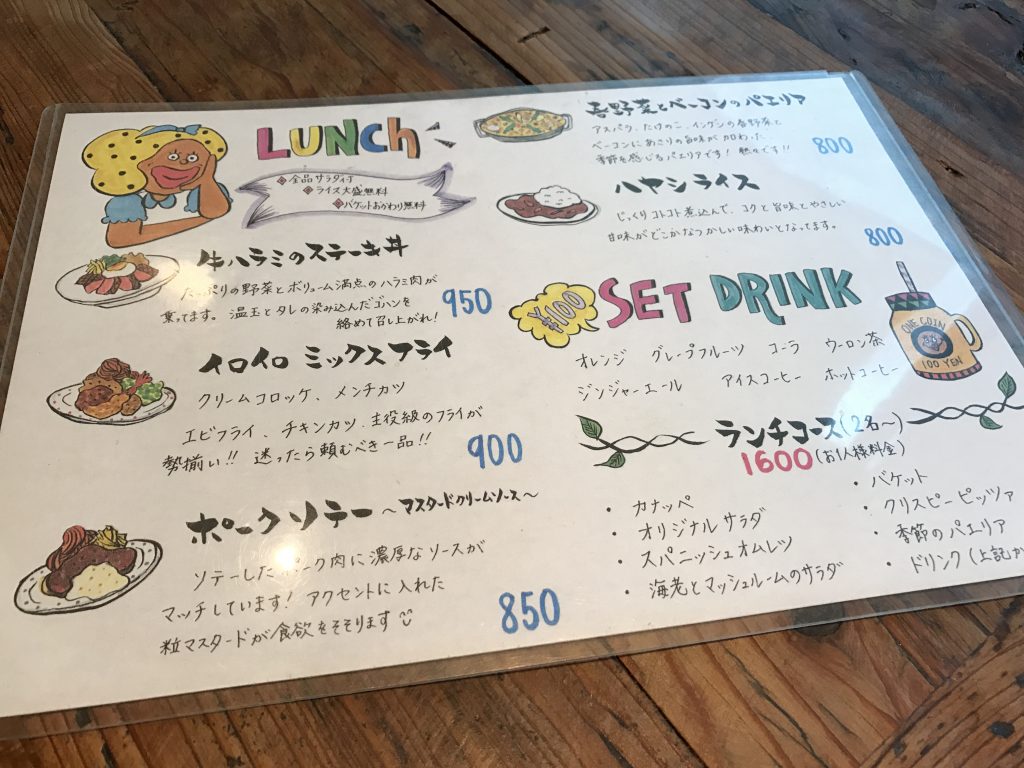 LUNCH
全品サラダ付
ライス大盛無料
バケットおかわり無料
牛ハラミのステーキ丼
たっぷりの野菜とボリューム満点のハラミ肉が
乗ってます。温玉とタレの染み込んだゴハンを
絡めて召し上がれ!
950
イロイロ ミックスフライ
クリームコロッケ、メンチカツ
エビフライ、チキンカツ、主役級のフライが
勢揃い!! 迷ったら頼むべき一品!!
900
ポークソテー ～マスタードクリームソース～
ソテーしたポーク肉に濃厚なソースが
マッチしています! アクセントに入れた
粒マスタードが食欲をそそります
850
春野菜とベーコンのパエリア
アスパラ、たけのこ、インゲンの春野菜と
ベーコンにあさりの旨味が加わった
季節を感じるパエリアです! 熱々です!!
800
ハヤシライス
じっくりコトコト煮込んで、コクと旨味とやさしい
甘味がどこかなつかしい味わいとなってます。
800
¥100
SET DRINK
オレンジ グレープフルーツ コーラ ウーロン茶
ジンジャーエール アイスコーヒー ホットコーヒー
ONE COIN
100 YEN
ランチコース(2名～)
1600(お1人様料金)
・カナッペ
・オリジナルサラダ
・スパニッシュオムレツ
・海老とマッシュルームのサラダ
・バケット
・クリスピーピッツァ
・季節のパエリア
・ドリンク(上記か